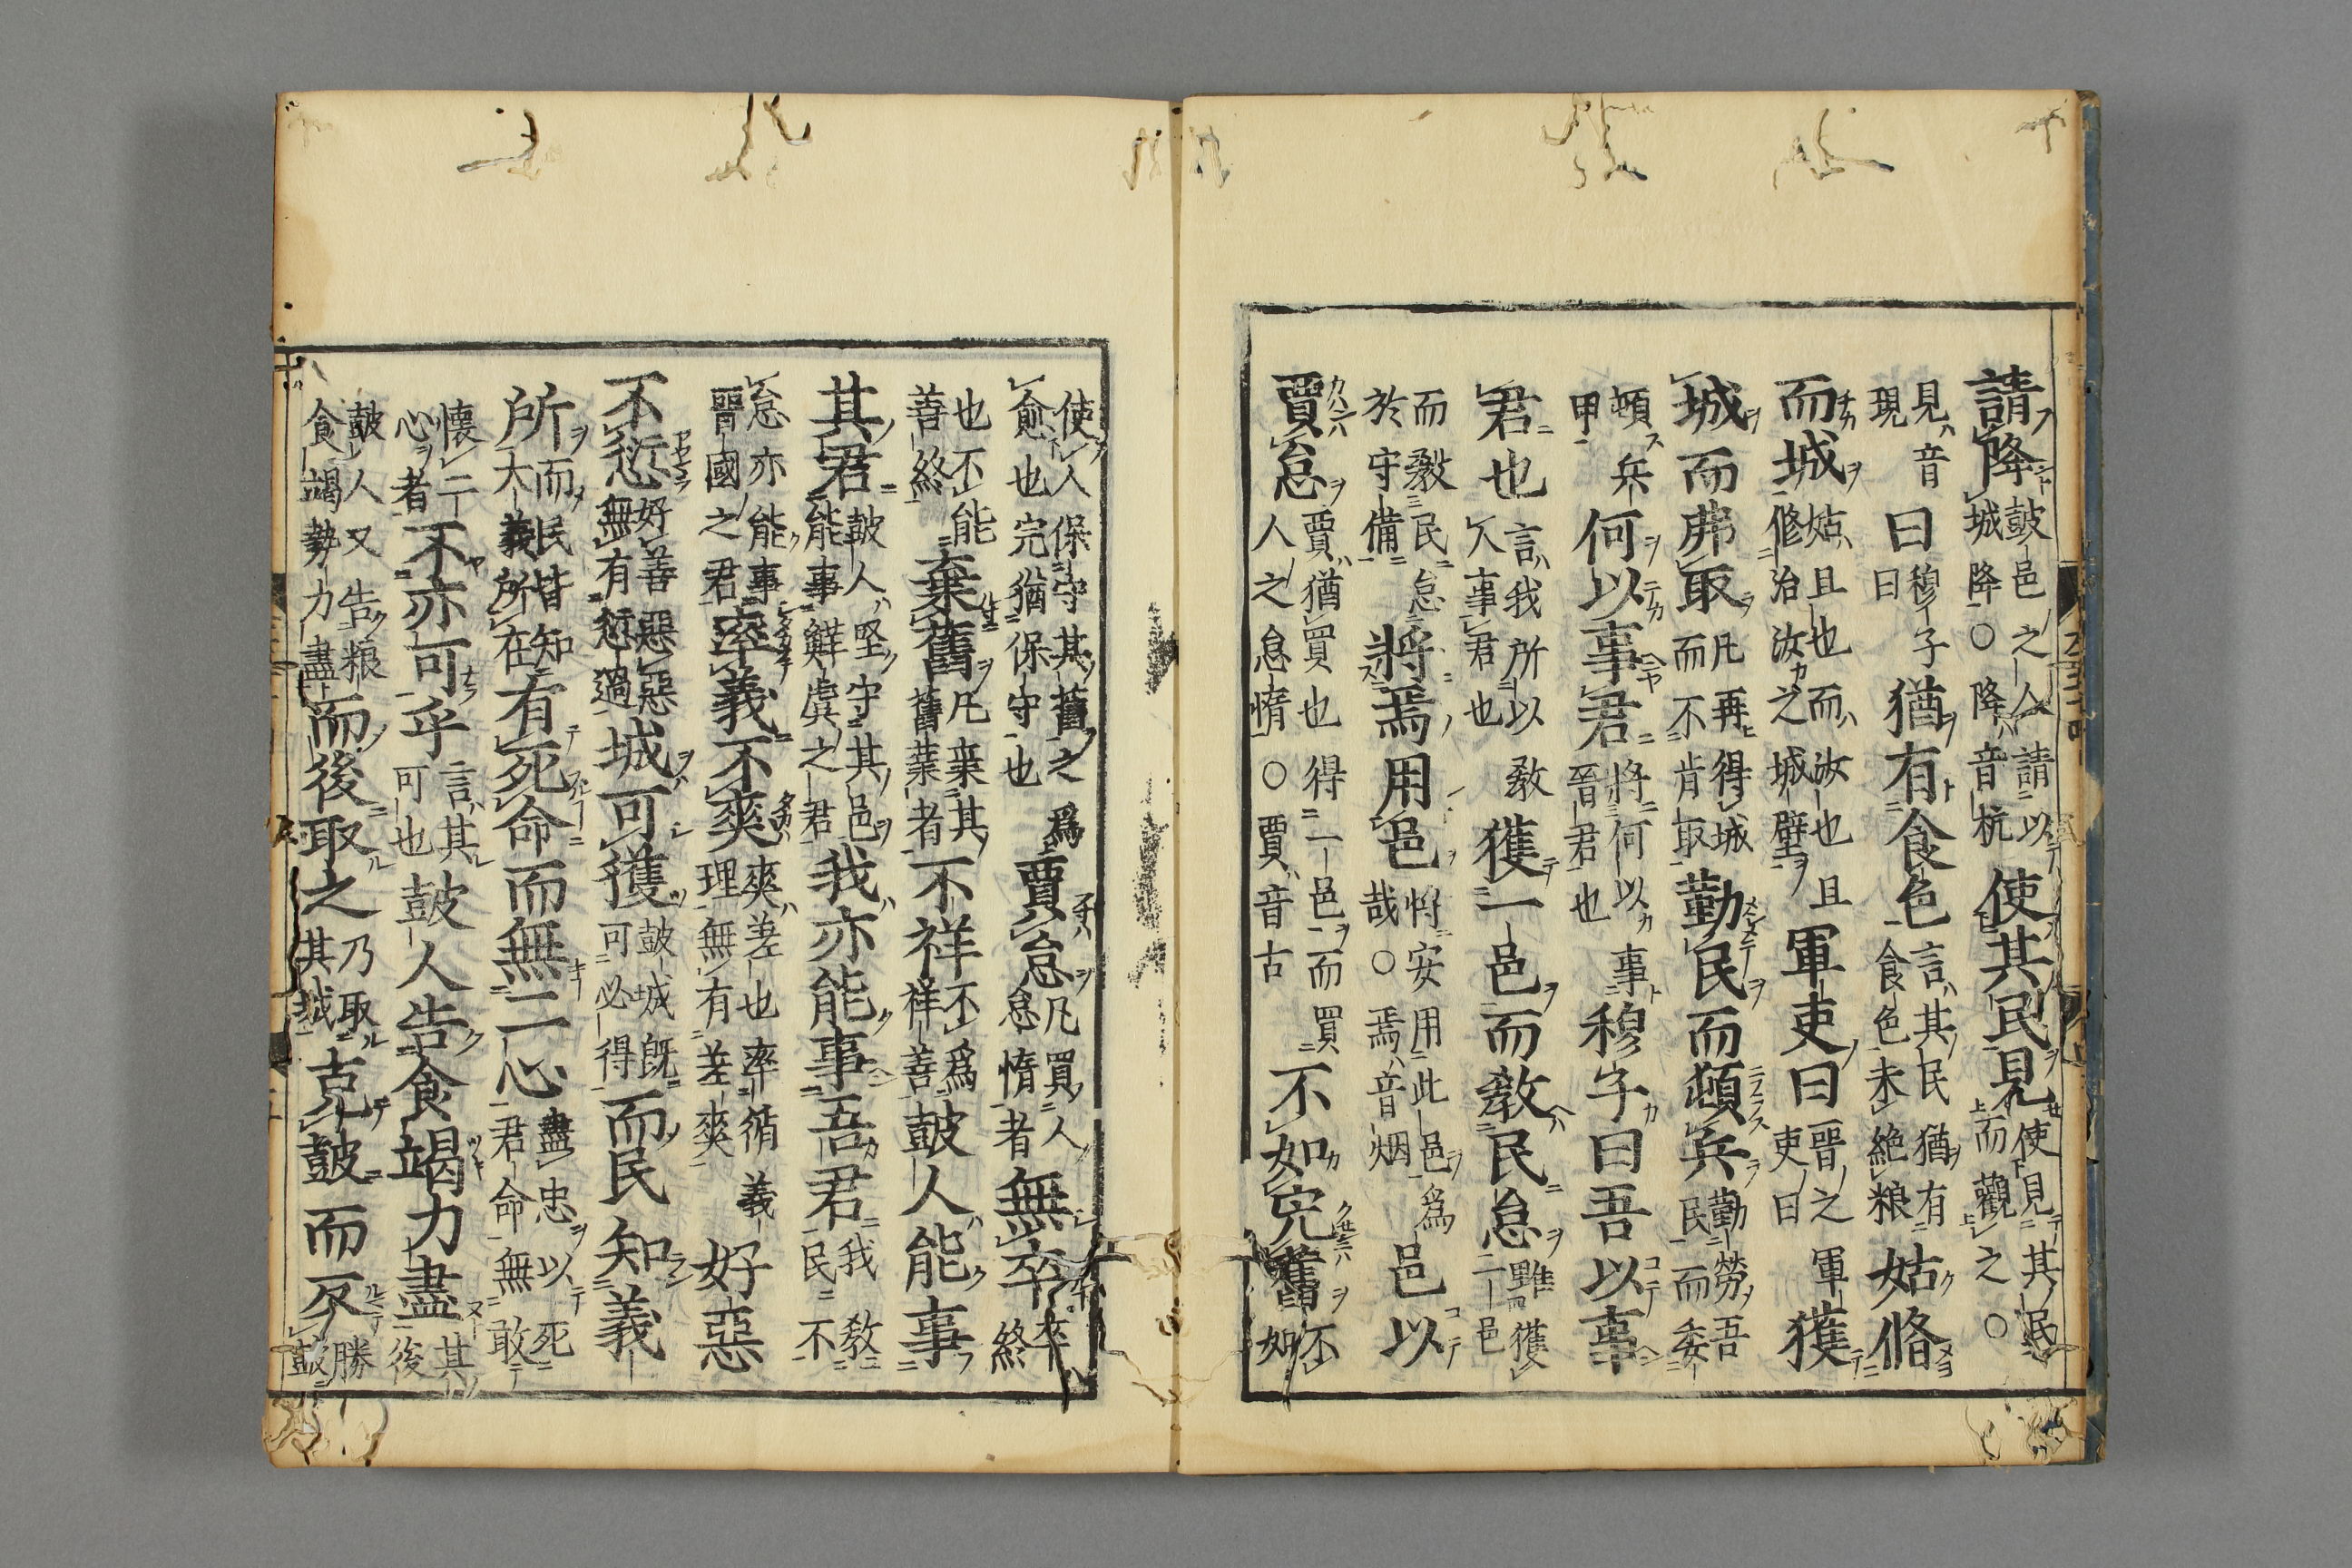 請降鼓邑之人請以城降○降音杭使其民見使見其民而觀之○
見音現曰穆子曰猶有食色言其民猶有食色未絶粮姑脩
而城姑且也而汝也且修治汝之城壁軍吏曰晋之軍吏曰獲
城而弗取凡再得城而不肯取勤民而頓兵勤勞吾民而委
頓兵甲何以事君將何以事晉君也穆子曰吾以事
君也言我所以教人事君也獲一邑而教民怠雖獲二邑
而教民怠於守備將焉用邑將安用此邑爲哉○焉音烟邑以
賈怠賈猶買也得一邑而買人之怠惰○賈音古不如完舊不如
使人保守其舊之爲愈也完猶保守也賈怠凡買人怠惰者無卒卒終
也不能善終棄舊凡棄其舊業者不祥不爲祥善鼓人能事
其君鼓人堅守其邑能事鮮虞之君我亦能事吾君我教民不
怠亦能事晋國之君率義不爽爽差也率循義理無有差爽好惡
不愆好善惡惡無有愆過城可獲鼓城既可必得而民知義
所而民皆知大義所在有死命而無二心盡忠以死君命無敢
懷二心者不亦可乎言其可也鼓人告食竭力盡其後
鼓人又告粮食竭勢力盡而後取之乃取其城克鼓而反勝鼓